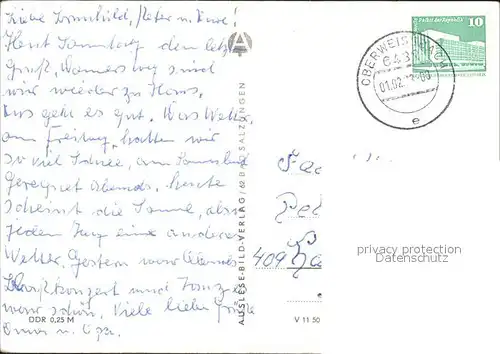 Liebe Irmhild, Peter u. Uwe!
Heut Sonntag den letzten
Gruß, Donnerstag sind
wir wieder zu Haus.
Uns geht es gut. Das Wetter
am Freitag hatten wir
so viel Schnee, am Sonnabend
Geregnet Abends, heute
scheint die Sonne, also
jeden Tag eine anderes
Wetter. Gestern war Abends
konzert und Tanz es
war schön. Viele liebe Grüße
Oma u. Opa.
DDR 0,25 M
AUSLESE-BILD-VERLAG / 62 BAD SALZUNGEN
V 11 50
OBERWEISSBACH
643
01.02.
e
Palast der Republik
10
409
privacy protection
Datenschutz